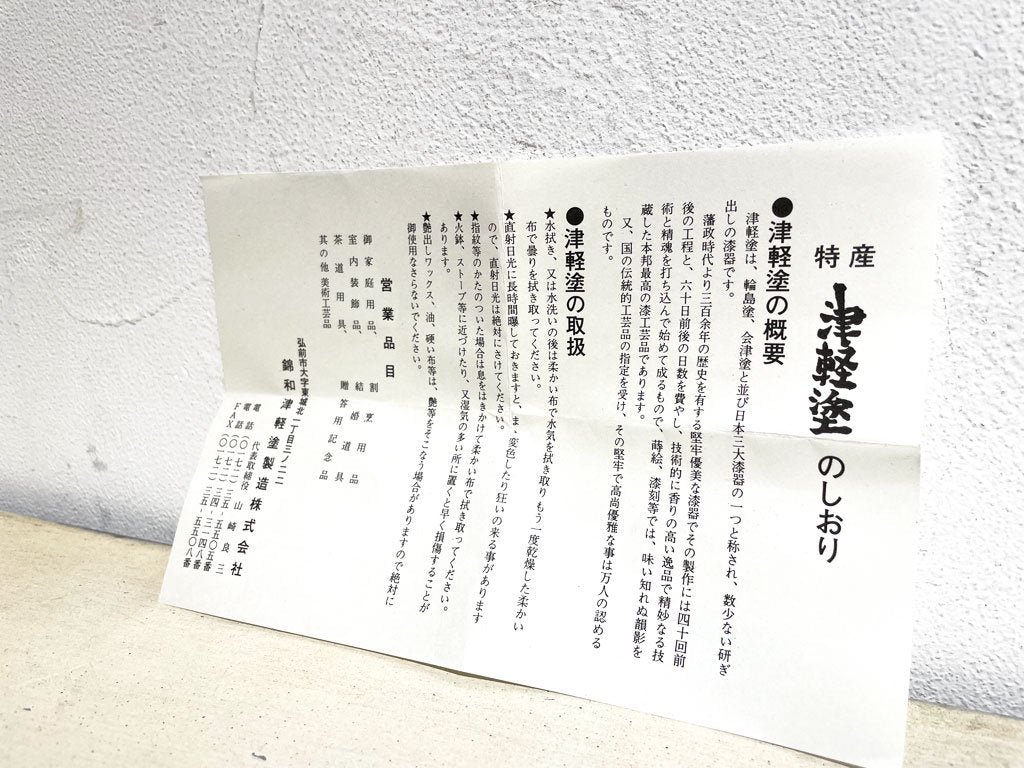 特産 津軽塗のしおり
●津軽塗の概要
津軽塗は、輪島塗、会津塗と並び日本三大漆器の一つと称され、数少ない研ぎ
出しの漆器です。
藩政時代より三百余年の歴史を有する堅牢優美な漆器でその製作には四十回前
後の工程と、六十日前後の日数を費やし、技術的に香りの高い逸品で精妙なる技
術と精魂を打ち込んで始めて成るもので、蒔絵、漆刻等では、味い知れぬ韻影を
蔵した本邦最高の漆工芸品であります。
又、国の伝統的工芸品の指定を受け、その堅牢で高尚優雅な事は万人の認める
ものです。
●津軽塗の取扱
★水拭き、又は水洗いの後は柔かい布で水気を拭き取りもう一度乾燥した柔かい
布で曇りを拭き取ってください。
★直射日光に長時間曝しておきますと、ま、変色したり狂いの来る事があります
ので、直射日光は絶対にさけてください。
★指紋等のかたのついた場合は息をはきかけて柔かい布で拭き取ってください。
★火鉢、ストーブ等に近づけたり、又湿気の多い所に置くと早く損傷することが
あります。
★艶出しワックス、油、硬い布等は、艶等をそこなう場合がありますので絶対に
御使用なさらないでください。
営業品目
御家庭用品、割烹用品
室内装飾品、結婚道具
茶道用具、贈答用記念品
其の他美術工芸品
弘前市大字東城北一丁目三ノ二二
錦和津軽塗製造株式会社
代表取締役 山崎良三
電話〇一七二―三五―五五〇五番
電話〇一七二―三四―三一四八番
FAX〇一七二―三五―五五〇八番